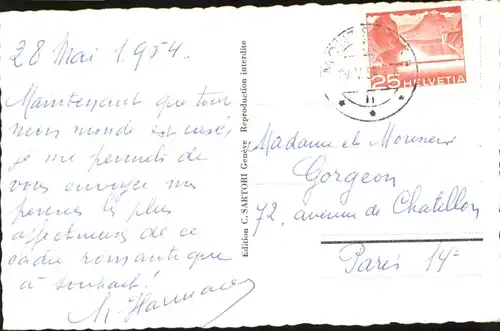 28 Mai 1954
Maintenant que tout
mon monde est casé
je me permets de
vous envoyer mes
pensées les plus
affectueuses de ce
cadre romantique
à souhait!
Edition C. SARTORI Genève Reproduction interdite
25 HELVETIA
Madame et Monsieur
Gorgeon
72, avenue de Chatillon
Paris 14e